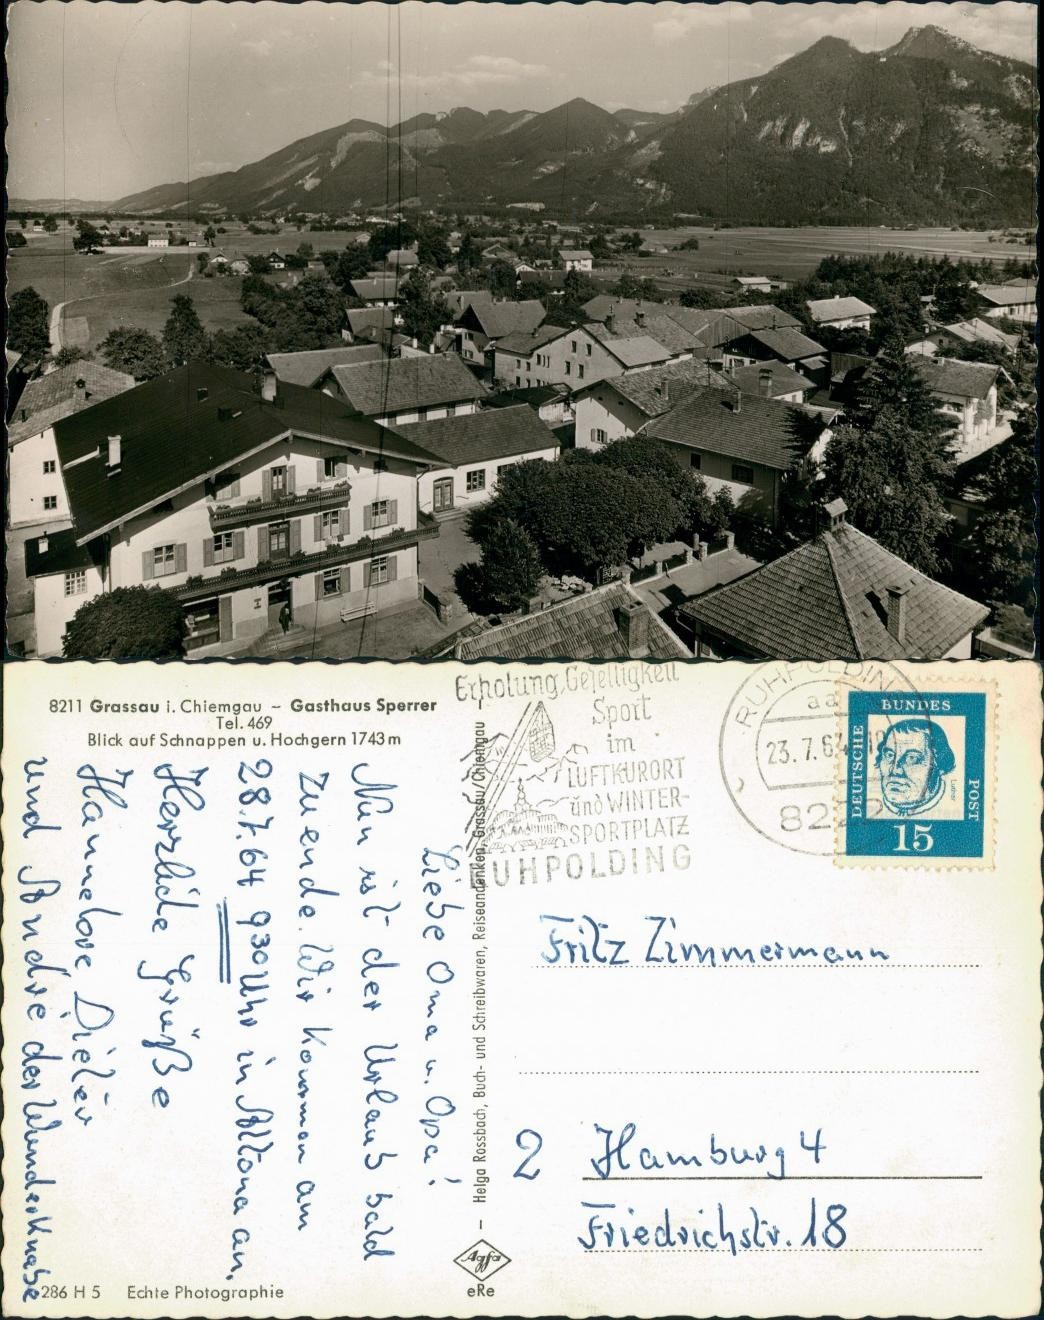 8211 Grassau i. Chiemgau – Gasthaus Sperrer
Tel. 469
Blick auf Schnappen u. Hochgern 1743 m
Liebe Oma u. Opa!
Nun ist der Urlaub bald
zu ende. Wir kommen am
28.7.64 930 Uhr in Altona an.
Herzliche Grüße
Hannelore Dieter
und Andre der Wunderknabe
286 H 5 Echte Photographie
— Helga Rossbach, Buch- und Schreibwaren, Reiseandenken, Grassau/Chiemgau —
Agfa
eRe
Erholung, Geselligkeit
Sport
im
LUFTKURORT
und WINTER-
SPORTPLATZ
RUHPOLDING
RUHPOLDING
aa
23.7.64
822
DEUTSCHE
BUNDES
POST
Luther
15
Fritz Zimmermann
2 Hamburg 4
Friedrichstr. 18